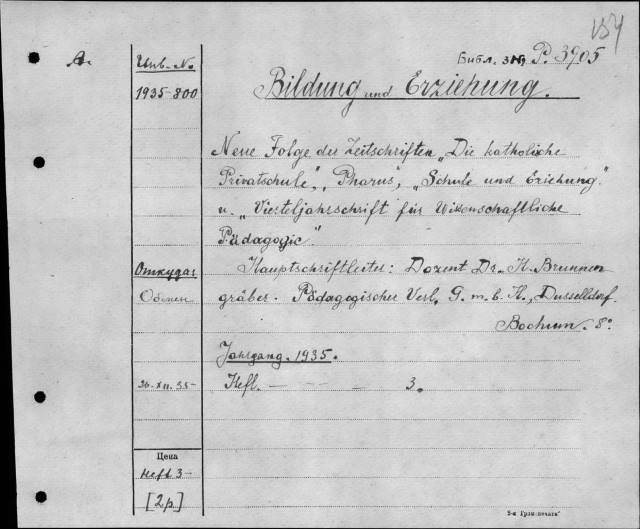 154
Библ. знҷ P. 3905
A.
Инв. No
1935-800
Bildung und Erziehung.
Neue Folge der Zeitschriften „Die katholische
Privatschule", „Pharus", „Schule und Eziehung"
u. „Vierteljahrsschrift für Wissenschaftliche
Pädagogic."
Откуда:
Обмен
Hauptschriftleiter: Dozent Dr. H. Brunnen
gräber. Pädagogischer Verl. G. m. b. H., Dusselldorf.
Bochum. 8°
Jahrgang. 1935.
26.XII.35- Heft. — -- — 3.
Цена
Heft 3-
[2 p]
5-я Гуз „печать"